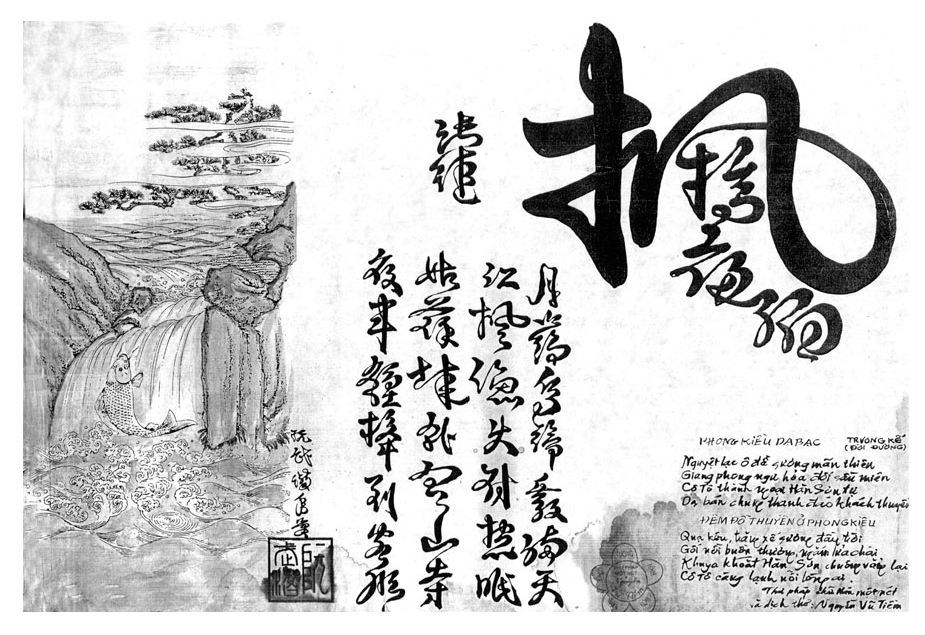 楓橋夜泊
張繼
月落烏啼霜滿天
江楓漁火對愁眠
姑蘇城外寒山寺
夜半鐘聲到客船
阮武潛
PHONG KIỀU DẠ BẠC
TRƯƠNG KẾ
(ĐỜI ĐƯỜNG)
Nguyệt lạc ô đề sương mãn thiên
Giang phong ngư hỏa đối sầu miên
Cô Tô thành ngoại Hàn Sơn tự
Dạ bán chung thanh đáo khách thuyền
ĐÊM ĐỖ THUYỀN Ở PHONG KIỀU
Quạ kêu, trăng xế sương đầy trời
Gối nỗi buồn thương, ngắm lửa chài
Khuya khoắt Hàn Sơn chuông vẳng lại
Cô Tô càng lạnh nỗi lòng ai.
Thư pháp chữ Hán một nét
và dịch thơ: Nguyễn Vũ Tiềm